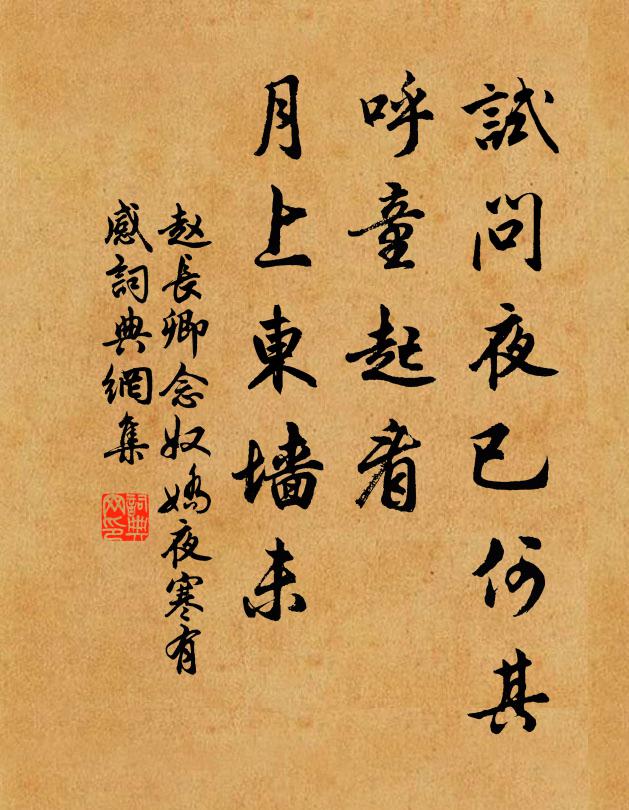 試問夜已何其
呼童起看
月上東墻未
赵長卿念奴嬌夜寒有
感詞典網集
詞典
網印